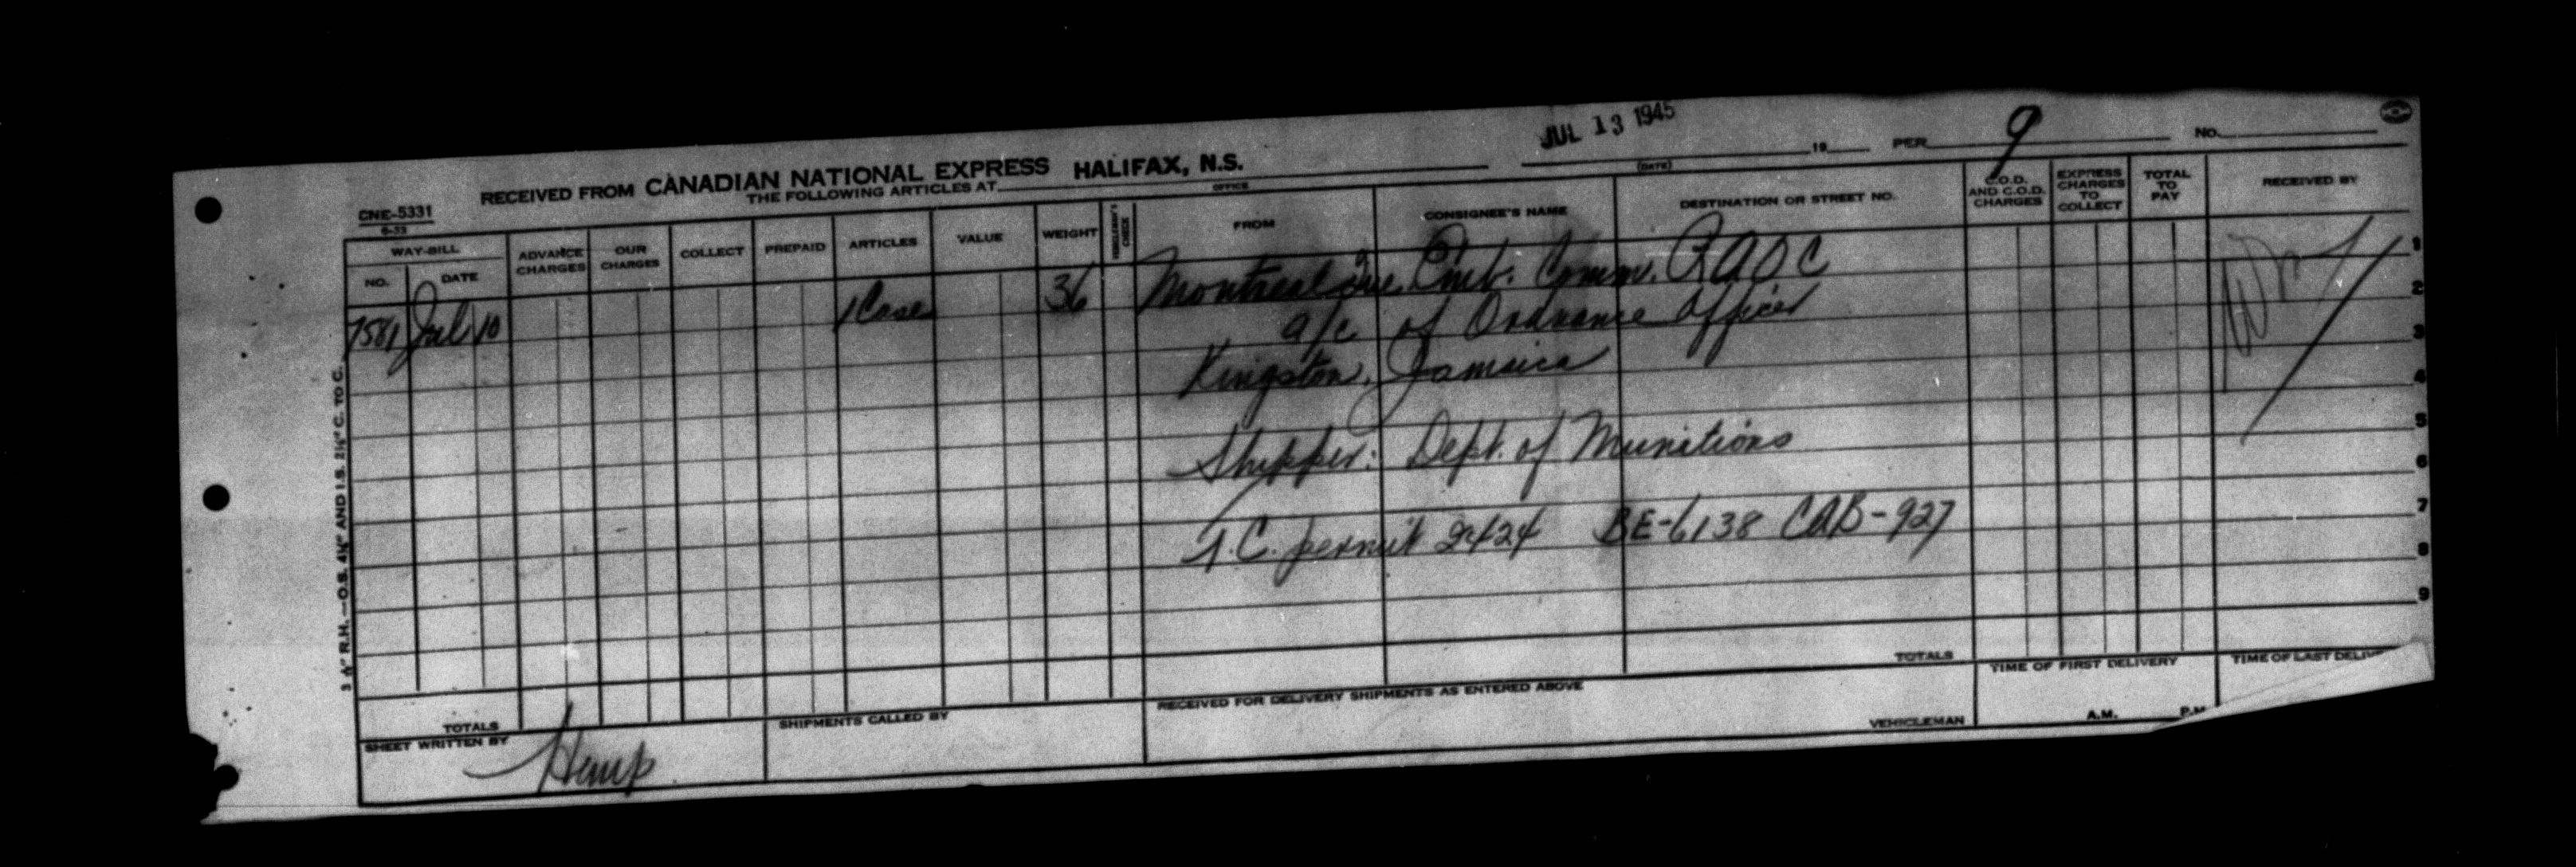 JUL 13 1945 19 PER 9 No.
RECEIVED FROM CANADIAN NATIONAL EXPRESS HALIFAX, N.S.
THE FOLLOWING ARTICLES AT OFFICE (DATE)
CNE-5331
6-33
WAY-BILL
NO. DATE ADVANCE CHARGES OUR CHARGES COLLECT PREPAID ARTICLES VALUE WEIGHT CHECK FROM CONSIGNEE'S NAME DESTINATION OR STREET NO. C.O.D. AND C.O.D. CHARGES EXPRESS CHARGES TO COLLECT TOTAL TO PAY RECEIVED BY
7581 Jul 10 1 Case 36 Montreal Que. Emb. Comm. RAOC
a/c of Ordnance Officer
Kingston, Jamaica
Shipper: Dept. of Munitions
T.C. permit 2424 BE-6138 CAB-927
1
2
3
4
5
6
7
8
9
3 R.H.—O.S. AND I.S. C. TO C.
TOTALS
TIME OF FIRST DELIVERY
TIME OF LAST
A.M. P.M
TOTALS
SHEET WRITTEN BY Hemp
SHIPMENTS CALLED BY
RECEIVED FOR DELIVERY SHIPMENTS AS ENTERED ABOVE
VEHICLEMAN